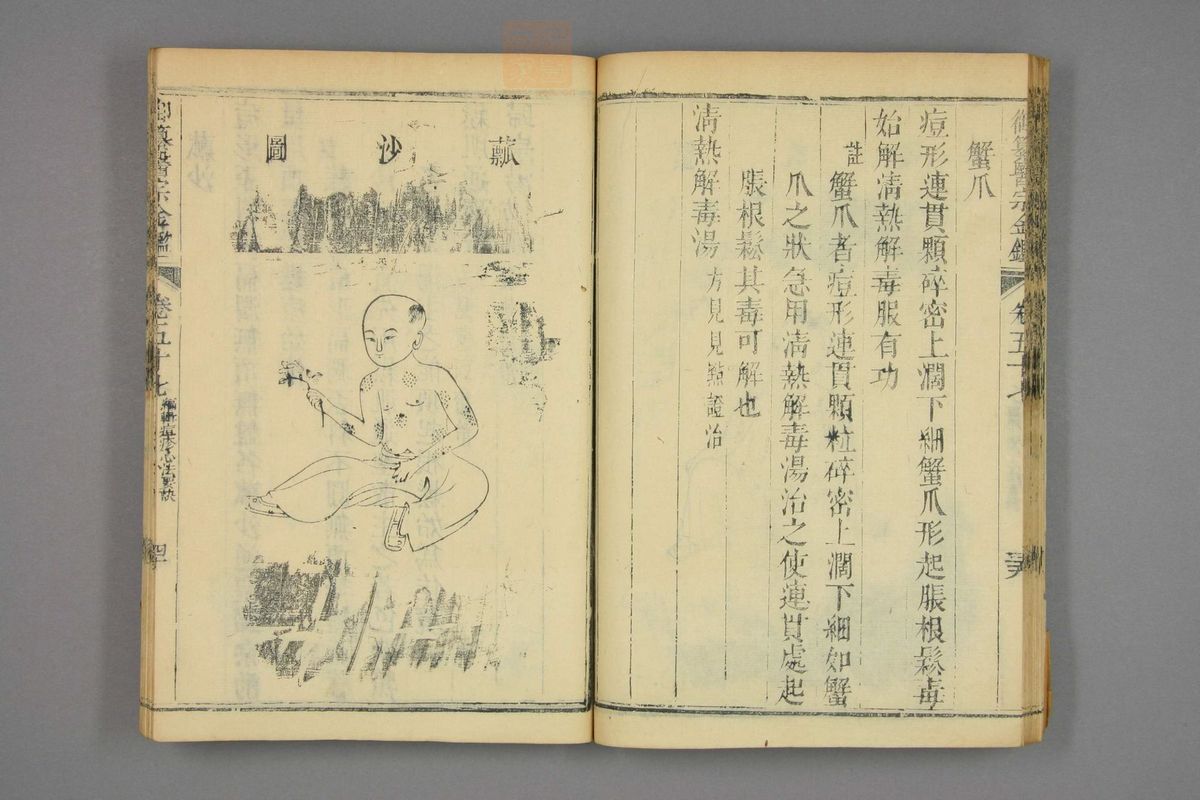 御纂醫宗金鑑
卷五十七
蟹爪
痘形連貫顆碎密上濶下細蟹爪形起脹根鬆毒
始解清熱解毒服有功
註
蟹爪者痘形連貫顆粒碎密上濶下細如蟹
爪之狀急用清熱解毒湯治之使連貫處起
脹根鬆其毒可解也
清熱解毒湯 方見見點證治
瓤沙圖
御纂醫宗金鑑
卷五十七
編輯痘疹心法要訣
四